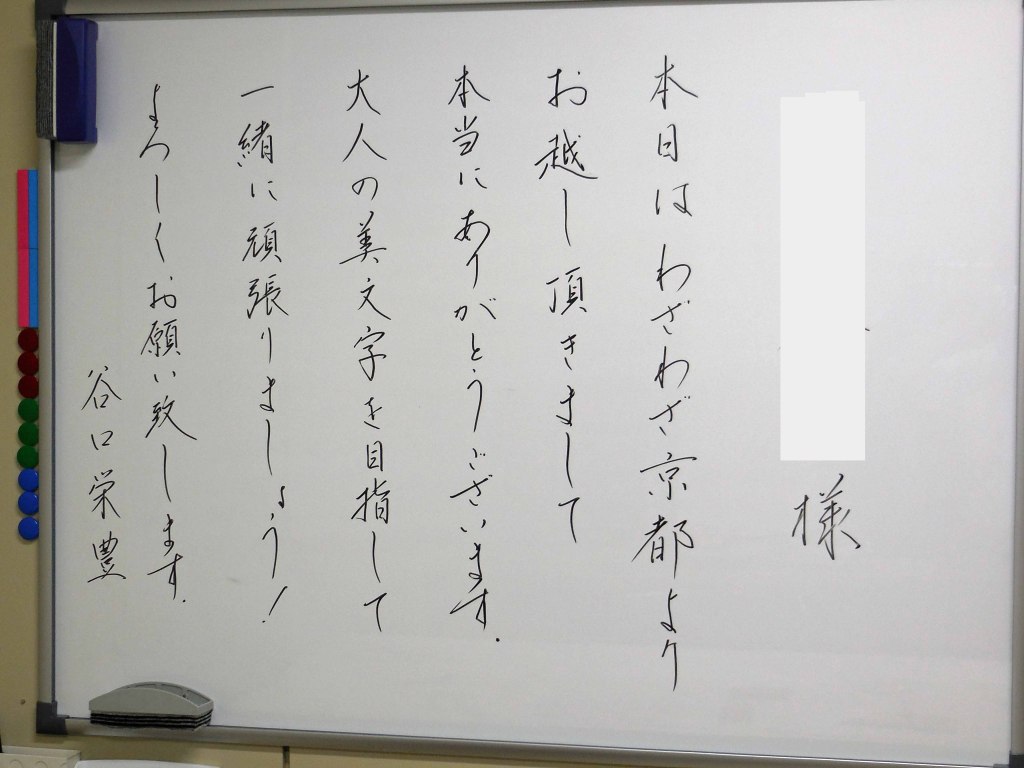 様
本日はわざわざ京都より
お越し頂きまして
本当にありがとうございます.
大人の美文字を目指して
一緒に頑張りましょう!
よろしくお願い致します.
谷口栄豊